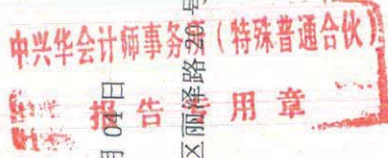 中兴华会计师事务所（特殊普通合伙）
报告专用章
月 04 日
区丽泽路 20 号